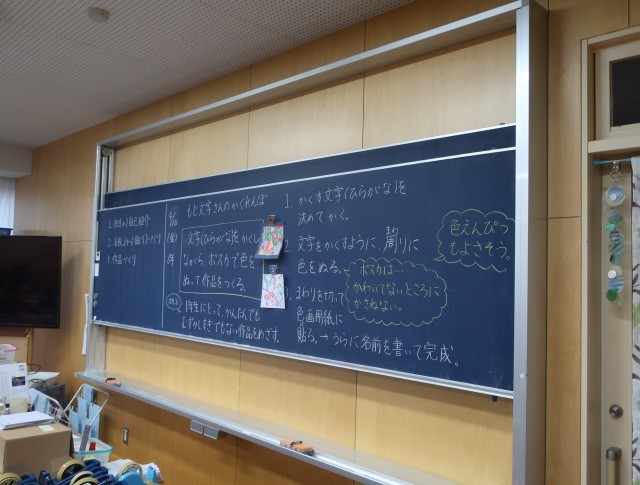 1. (先生の)自己紹介
2. 名札(トイ飾り)づくり
3. 作品づくり
もじ文字さんのかくれんぼ
文字(ひらがな)をかくし
ながら、ポスカで色を
ぬって作品をつくる。
1年生にとって、かんたんでも
むずかしすぎでもない作品をめざす。
1. かくす文字(ひらがな)を
決めてかく。
2. 文字をかくすように、周りに
色をぬる。
まわりを切って
色画用紙に
貼る。→うらに名前を書いて完成。
色えんぴつ
もよさそう。
ポスカは…
かわいてないところに
かさねない。